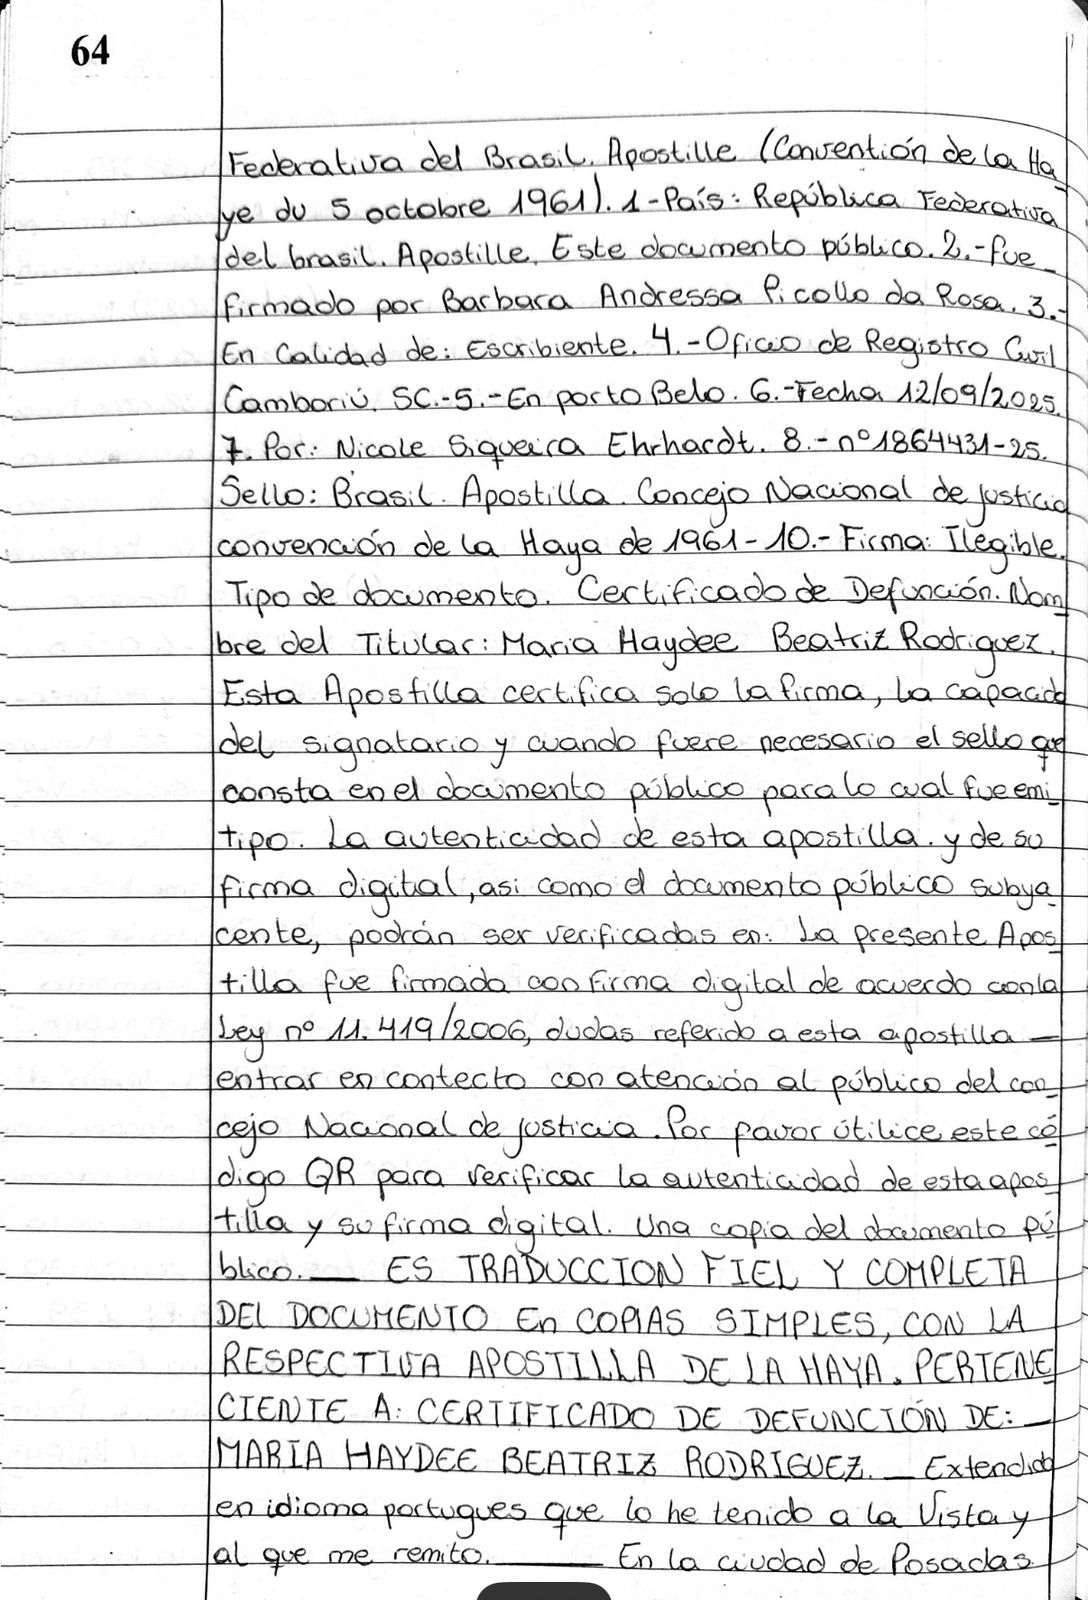 64
Federativa del Brasil. Apostille (Convention de la Ha
ye du 5 octobre 1961). 1-País: República Federativa
del brasil. Apostille. Este documento público. 2.- fue
firmado por Barbara Andressa Picollo da Rosa. 3.-
En Calidad de: Escribiente. 4.-Oficio de Registro Civil
Camboriú. SC.-5.-En porto Belo. 6.-Fecha 12/09/2025.
7. Por: Nicole Siqueira Ehrhardt. 8.- nº 1864431-25.
Sello: Brasil. Apostilla. Concejo Nacional de justicia
convención de la Haya de 1961-10.- Firma: Ilegible.
Tipo de documento. Certificado de Defunción. Nom
bre del Titular: Maria Haydee Beatriz Rodriguez.
Esta Apostilla certifica solo la firma, la capacid
del signatario y cuando fuere necesario el sello que
consta en el documento público para lo cual fue emi_
tipo. La autenticidad de esta apostilla. y de su
firma digital, asi como el documento público subya_
cente, podrán ser verificadas en: La presente Apos_
tilla fue firmada con firma digital de acuerdo con la
Ley nº 11.419/2006, dudas referido a esta apostilla —
entrar en contecto con atención al público del con_
cejo Nacional de justicia. Por favor útilice este có_
digo QR para verificar la autenticidad de esta apos_
tilla y su firma digital. Una copia del documento pú_
blico. — ES TRADUCCION FIEL Y COMPLETA
DEL DOCUMENTO En COPIAS SIMPLES, CON LA
RESPECTIVA APOSTILLA DE LA HAYA. PERTENE_
CIENTE A: CERTIFICADO DE DEFUNCIÓN DE: —
MARIA HAYDEE BEATRIZ RODRIGUEZ. — Extendido
en idioma portugues que lo he tenido a la Vista y
al que me remito. ——— En la ciudad de Posadas